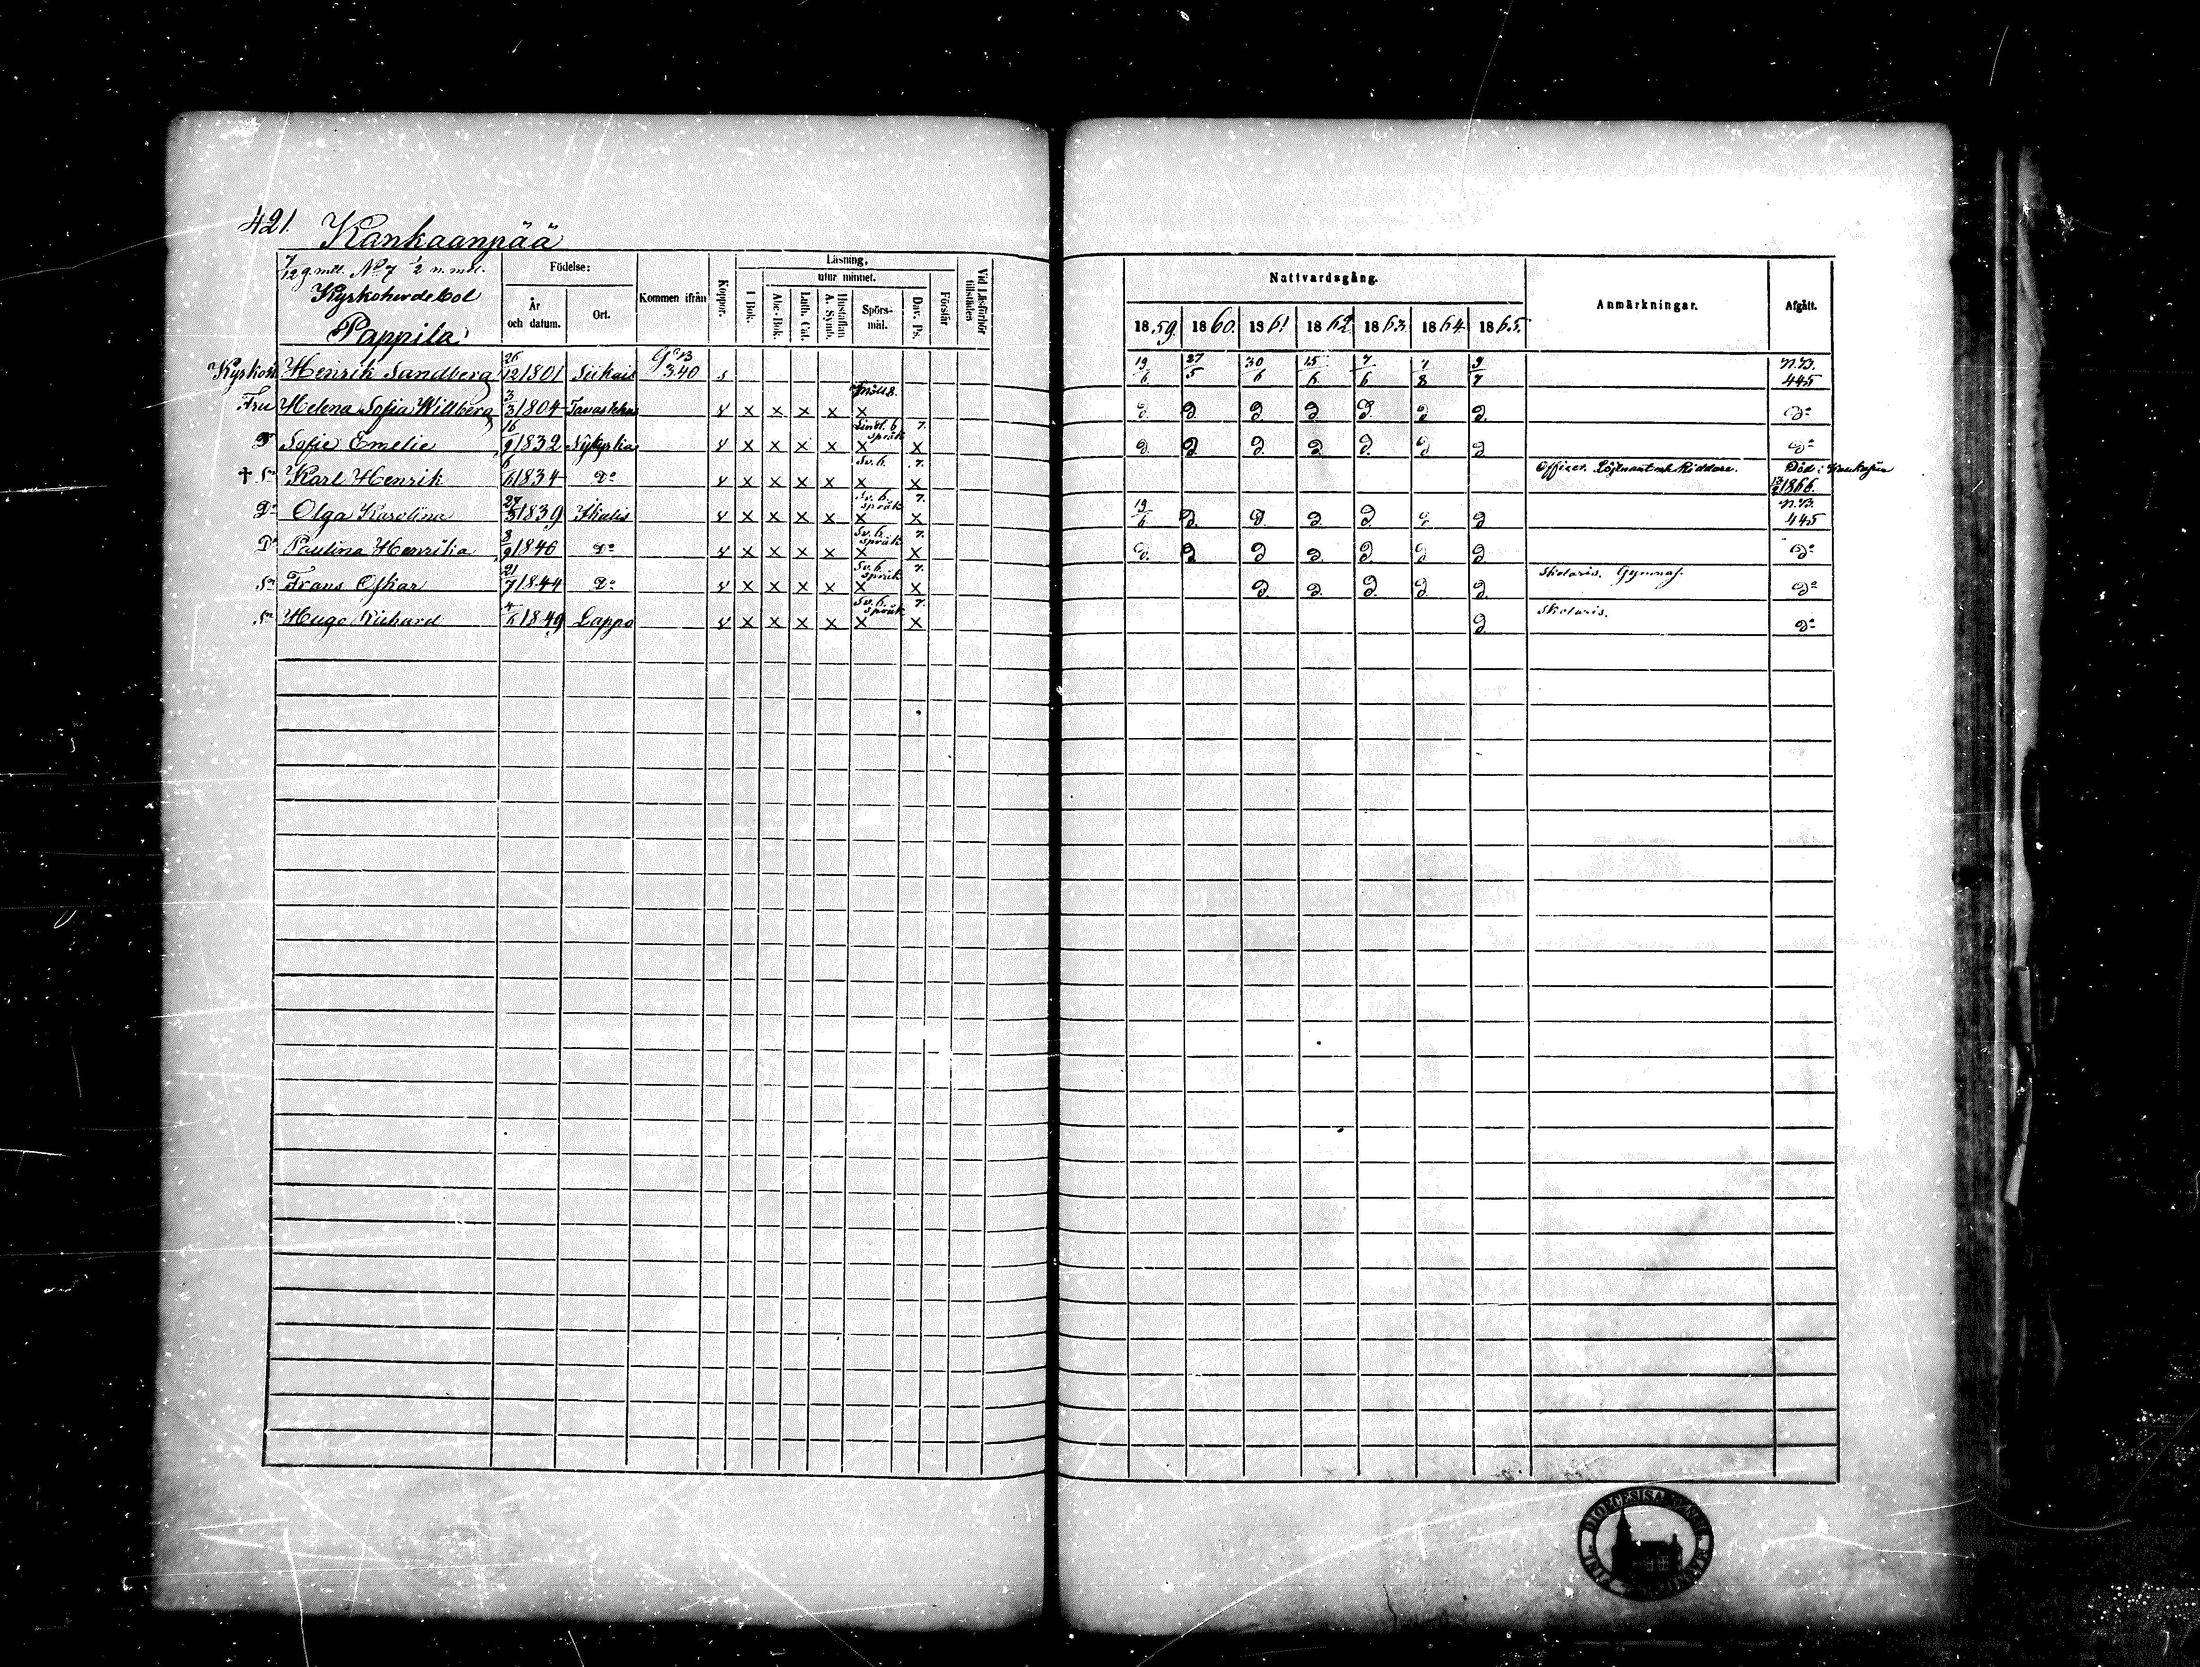 421. Kankaanpää
7/12 g. mtl. No 7 1/2 n. mtl.
Kyrkoherdebol
Pappila
Födelse:
År och datum.
Ort.
Kommen ifrån
Koppor.
Läsning,
utur minnet.
I Bok.
Abc-Bok.
Luth. Cat.
Hustaflan A. Symb.
Spörsmål.
Dav. Ps.
Förstår
Vid Läsförhör tillstädes
Nattvardsgång.
1859. 1860. 1861 1862 1863. 1864. 1865.
Anmärkningar.
Afgått.
Kyrkoh. Henrik Sandberg 26/12 1801 340 s 19/6 27/5 30/6 15/6 7/6 7/8 9/7 N.B. 445
Fru Helena Sofia Willberg 3/3 1804 Tavastehus v x x x x x D. D. D. D. D. D. D. Do
Dr Sofie Emelie 16/9 1832 Nykyrka v x x x x språk x 7. x D. D. D. D. D. D. D. Do
† Sn Karl Henrik 6/6 1834 Do v x x x x Sv. 6. x 7. x Officer. Löjtnant och Riddare. Död i 1866.
Dr Olga Karolina 27/3 1839 Ikalis v x x x x Sv. 6. språk x 7. x 19/6 D. D. D. D. D. D N.B. 445
Dr Paulina Henrika 8/9 1846 Do v x x x x Sv. 6. språk x 7. x D. D D D. D. D D Do
Sn Frans Oskar 21/7 1844 Do v x x x x Sv. 6. språk x 7. x D. D. D. D. D. Skolaris. Gymnas. Do
Sn Hugo Richard 4/6 1849 Lappo v x x x x Sv. 6. språk x 7. x D. Skolaris. Do